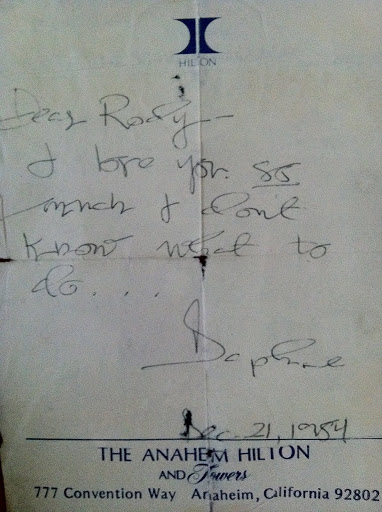 HILTON
Dear Rody—
I love you so
much I don't
know what to
do...
Daphne
Dec. 21, 1984
THE ANAHEIM HILTON
AND Towers
777 Convention Way Anaheim, California 92802